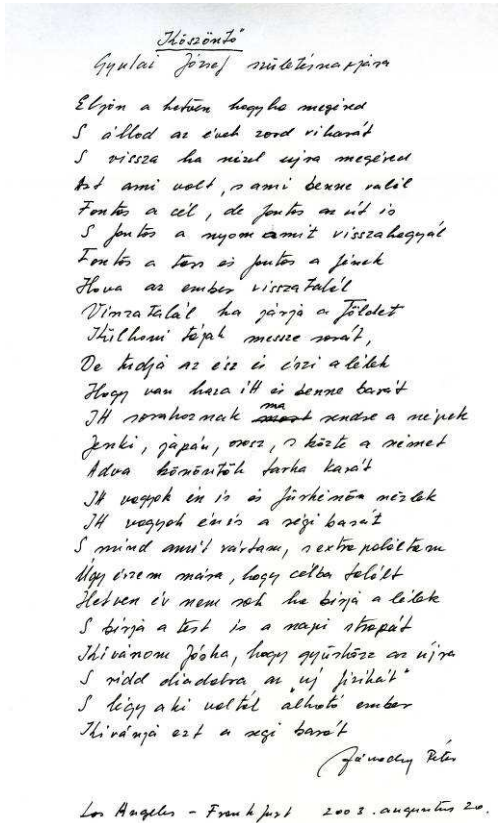 "Köszöntő"
Gyulai József születésnapjára
Eljön a hetven hogyha megéred
S állod az évek zord viharát
S vissza ha nézel ujra megéred
Azt ami volt, s ami benne valál
Fontos a cél, de fontos az út is
S fontos a nyom amit visszahagyál
Fontos a terv és fontos a fének
Hova az ember visszatalál
Visszatalál ha járja a Földet
Külhoni tájak messze sorát,
De tudja az ész és érzi a lélek
Hogy van haza itt és benne barát
Itt sorakoznak ma rendre a népek
Jenki, japán, orosz, s közte a német
Adva köszöntők tarka karát
Itt vagyok én is és fürkészőn nézlek
Itt vagyok én is a régi barát
S mind amit vártam, s extrapoláltam
Úgy érzem mára, hogy célba talált
Hetven év nem sok ha birja a lélek
S birja a test is a napi strapát
Kivánom Jóska, hogy gyürkőzz az ujra
S vidd diadalra az "uj fizikát"
S légy aki voltál "álható ember
Kivánja ezt a régi barát
Závodny Péter
Los Angeles - Frankfurt 2003. augusztus 20.